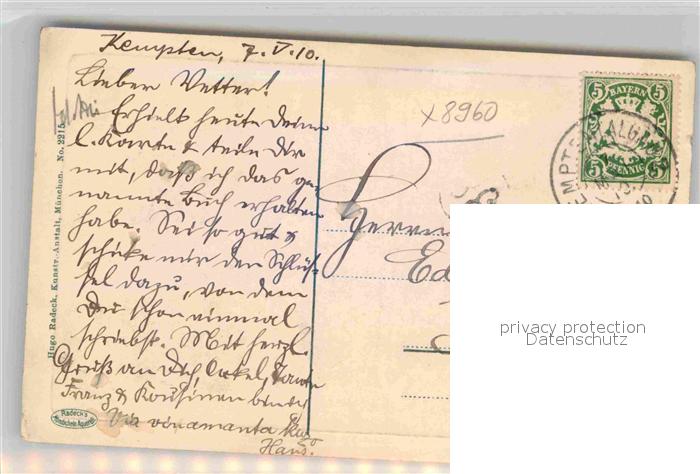 Kempten, 7. V. 10.
Lieber Vetter!
Erhielt heute deine
l. Karte & teile dir
mit, daß ich das ge-
nannte Buch erhalten
habe. Sei so gut &
schicke mir den Schlüs-
sel dazu, von dem
Du schon einmal
schriebst. Mit herzl.
Gruß an Dich, Onkel, Tante
Franz & Kousinen
Hans.
Hugo Radeck, Kunstv.-Anstalt, München. No. 2215
Radeck's
x8960
Herrn
BAYERN
5 5
5 5
PFENNIG
privacy protection
Datenschutz